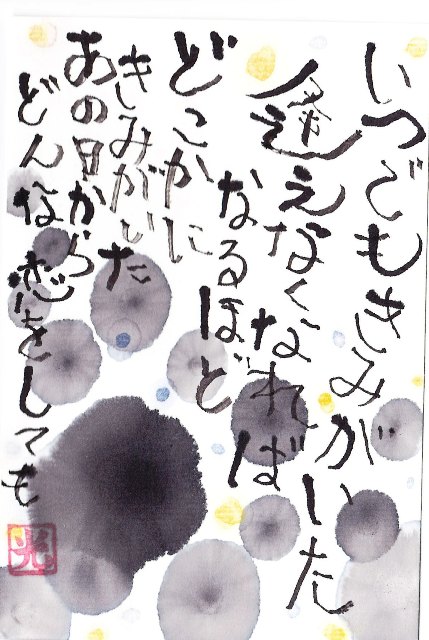 いつでもきみがいた
逢えなくなれば
なるほど
どこかに
きみがいた
あの日から
どんな恋をしても
光